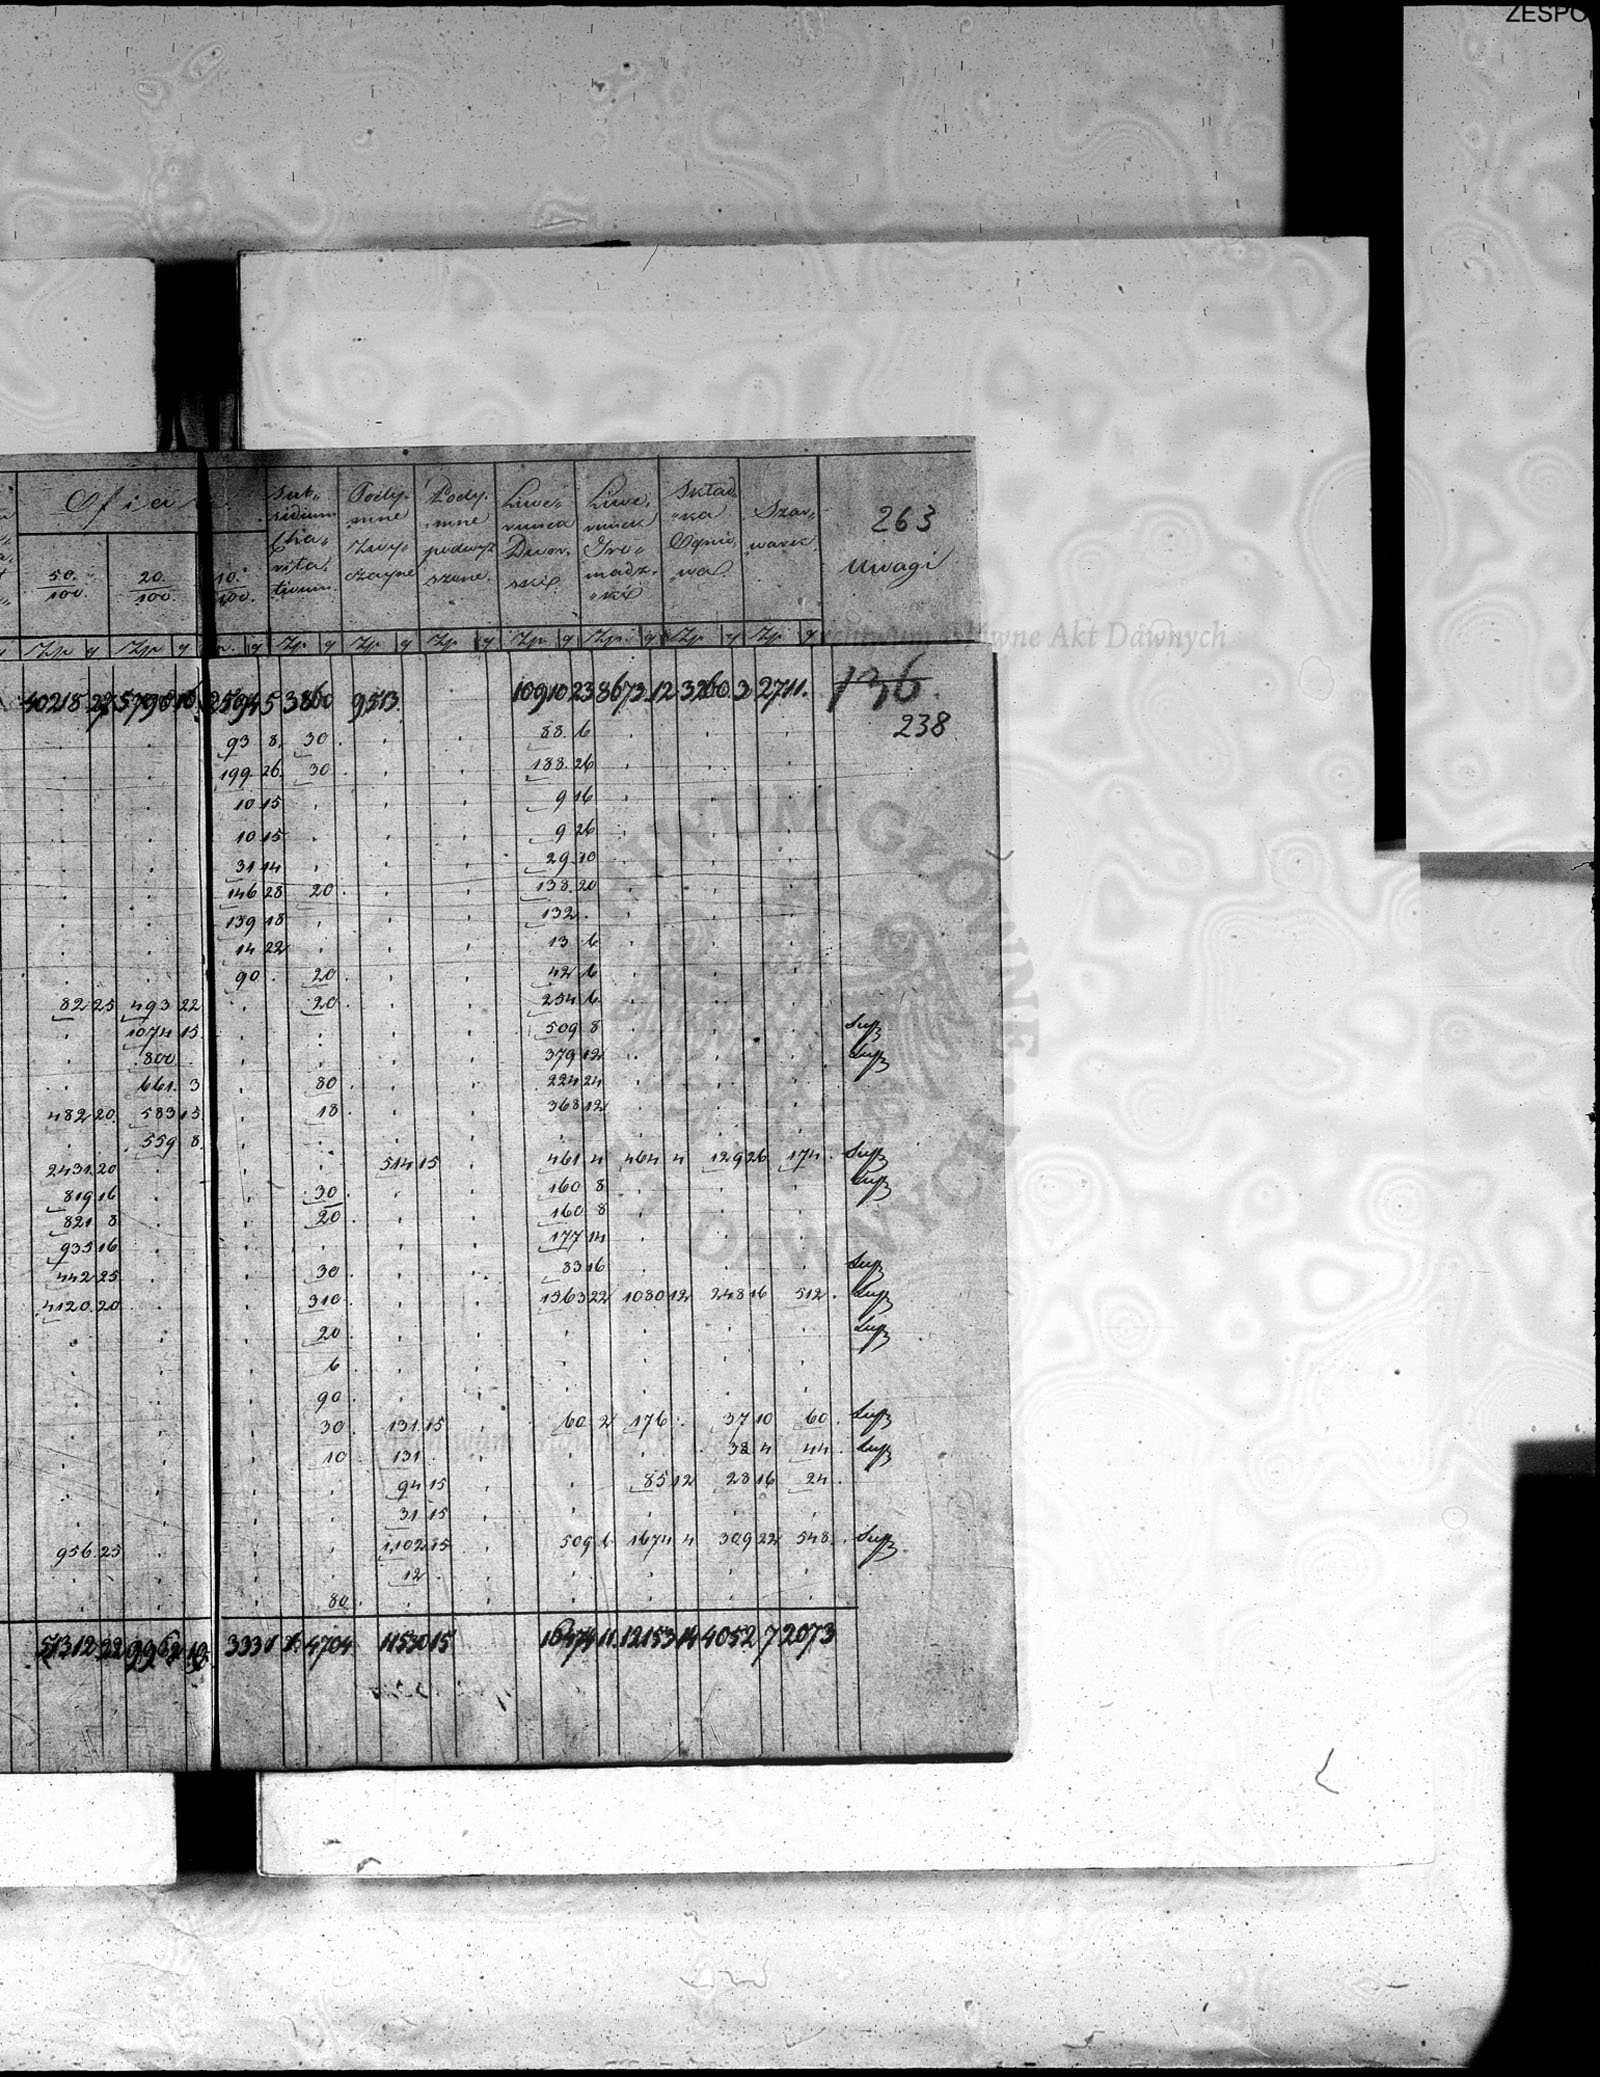 ZESPO
Ofiara
50/100. 20/100. 10./100.
Sub„sidium Cha„rita„tivum.
Pody„mne Zwy„czayne
Pody„mne podwyż„szone.
Liwe„runek Dwor„ski
Liwe„runek Gro„madz„ki
Skład„ka Ognio„wa
Szar„wark
263
Uwagi
Złp g Złp g g Złp g Złp g Złp g Złp g Złp g Złp g Złp g
Archiwum Główne Akt Dawnych
40218 27 5790 10 2594 5 3860 9513 10910 23 8673. 12 3260. 3 2711. 136
238
93 8. 30. 88. 6
199 26. 30 188. 26
10 15 9 16
10 15 9 26
31 14 29 10
146 28 20. 138. 20
139 18 132.
14 22 13 6
90. 20. 42 6
82 25 493 22 20. 254 6
1074 15 509 8
800 379 12
661. 3 80. 224 24
482 20. 583 15 18. 368 12
559 8.
2431. 20 514 15 461 4 464 4 129 26 174.
819 16 30. 160 8
821 8 20. 160 8
935 16 177 14
442 25 30. 83 16
4120. 20 310. 1363 22 1080 12 248 16 512.
20.
6
90.
30 131. 15 60 2 176. 37 10 60.
10 131. 38 4 44.
94 15 85 12 28 16 24.
31 15
956. 25 1102 15 509 6 1674 4 309 22 548.
12
80.
51312 22 9962 10. 3331 4704. 11530 15 16474 11. 12153 14 4052 7 2073
ARCHIWUM GŁÓWNE AKT DAWNYCH